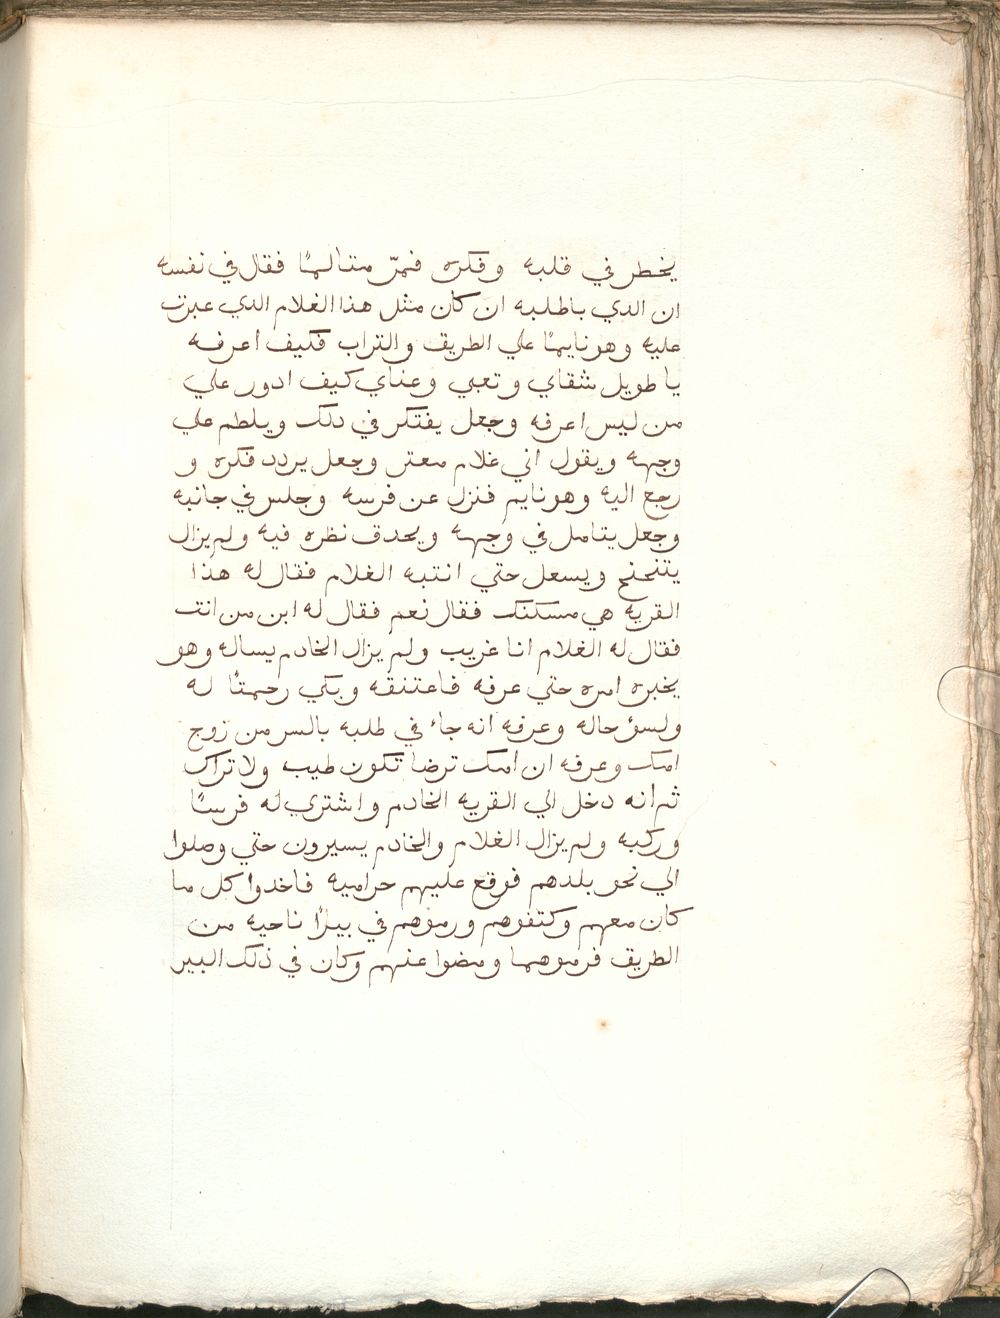 يخطر في قلبه وفكره فمرّ متالمًا فقال في نفسه
ان الدي باطلبه ان كان مثل هذا الغلام الدي عبرت
عليه وهو نايمًا علي الطريق والتراب فكيف اعرفه
يا طويل شقاي وتعبي وعناي كيف ادور علي
من ليس اعرفه وجعل يفتكر في دلك ويلطم علي
وجهه ويقول اني غلام معتر وجعل يردد فكره و
رجع اليه وهو نايم فنزل عن فرسه وجلس في جانبه
وجعل يتامل في وجهه ويحدق نظره فيه ولم يزال
يتنحنح ويسعل حتي انتبه الغلام فقال له هذا
القرية هي مسكنك فقال نعم فقال له ابن من انت
فقال له الغلام انا غريب ولم يزال الخادم يساله وهو
يخبره امره حتي عرفه فاعتنقه وبكي رحمتًا له
ولسؤ حاله وعرفه انه جاء في طلبه بالسر من زوج
امك وعرفه ان امك ترضا تكون طيب ولا تراك
ثم انه دخل الي القريه الخادم واشتري له فرسًا
وركبه ولم يزال الغلام والخادم يسيرون حتي وصلوا
الي نحو بلدهم فوقع عليهم حراميه فاخدوا كل ما
كان معهم وكتفوهم ورموهم في بيرًا ناحيه من
الطريق فرموهما ومضوا عنهم وكان في ذلك البير